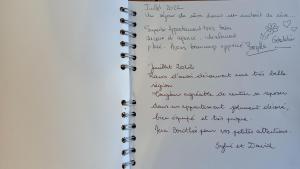 Juillet 2022
Un séjour de rêve dans un endroit de rêve...
Superbe appartement très bien
décoré et agencé. Idéalement
placé. Avons beaucoup apprécié
Juillet 2022
Ravis d'avoir découvert une très belle
région.
Toujours agréable de rentrer se reposer
dans un appartement joliment décoré,
bien équipé et très propre.
pour vos petites attentions.
Sylvie et David